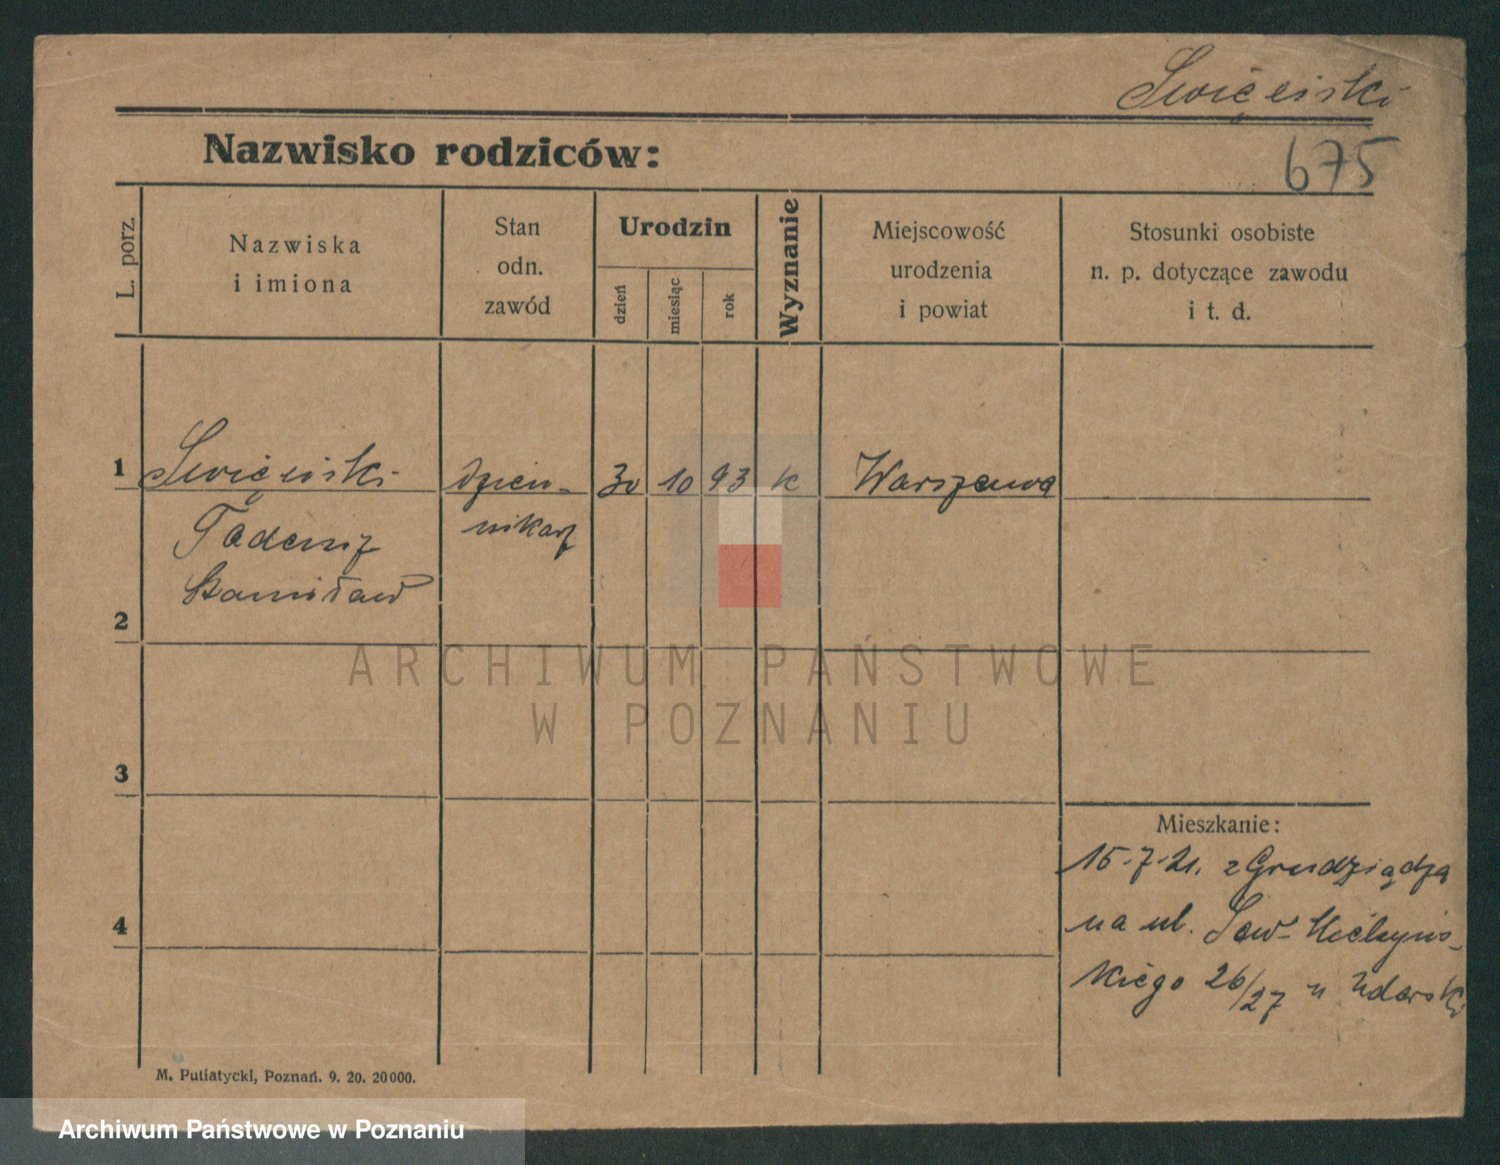 Święcicki
675
Nazwisko rodziców:
L. porz.
Nazwiska
i imiona
Stan
odn.
zawód
Urodzin
dzień
miesiąc
rok
Wyznanie
Miejscowość
urodzenia
i powiat
Stosunki osobiste
n. p. dotyczące zawodu
i t. d.
1 dzien- 30 10 93 k Warszawa
Tadeusz nikarz
Stanisław
2
3
4
Mieszkanie:
15-7-21. z Grudziądza
na ul.
26/27 u
M. Putiatycki, Poznań. 9. 20. 20000.
ARCHIWUM PAŃSTWOWE
W POZNANIU
Archiwum Państwowe w Poznaniu